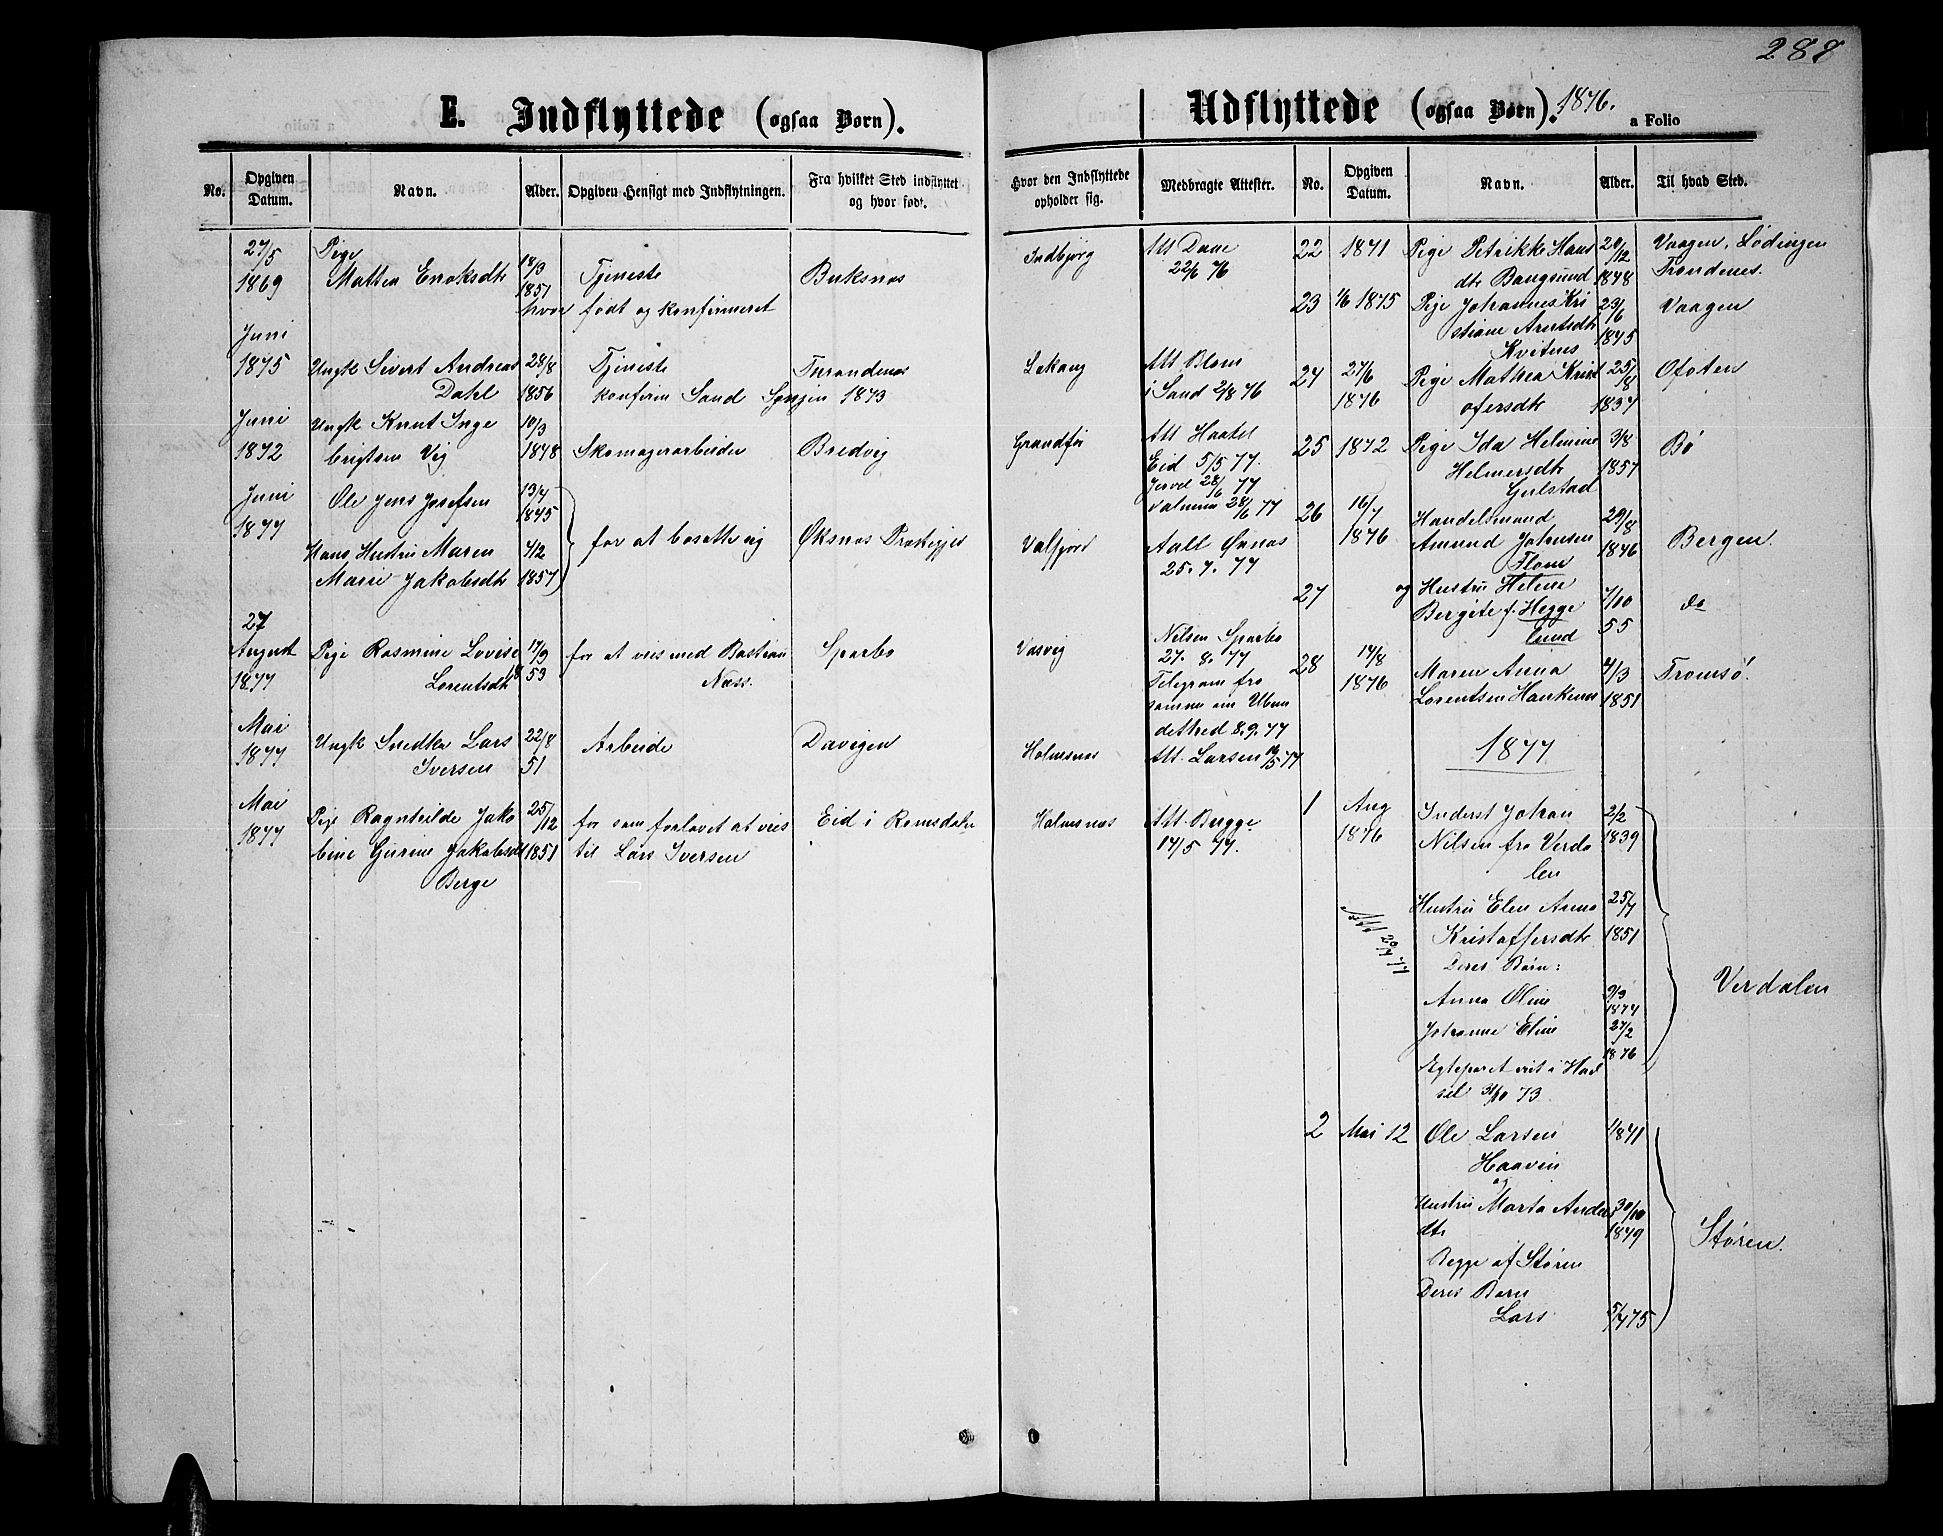 288
E. Indflyttede (ogsaa Børn).
No.
Opgiven Datum.
Navn.
Alder.
Opgiven Hensigt med Indflytningen.
Fra hvilket Sted indflyttet og hvor født.
Hvor den Indflyttede opholder sig.
Medbragte Attester.
27/5 1869 Pige Mathea Enoksdtr 18/3 1851 Tjeneste Buksnæs Indbjorg Att Daae 22/6 76
hvor født og konfirmeret
Juni 1875 Ungk Sivert Andreas Dahl 28/8 1856 Tjeneste Tarandenæs Lekang Att Blom i Sand 2/8 76
konfirm Sand Senjen 1873
Juni 1872 Ungk Knut Inge brigtsen Vig 10/3 1848 Skomagerarbeide Bredvig Grandfør Att Haatel Eid 5/5 77.
28/6 77
28/6 77
Juni 1877 Ole Jens Josefsen 13/7 1845
Hans Hustru Maren Marie Jakobsdtr 4/2 1857 for at bosætte sig Øksnæs Valfjord Aall Øxnæs 25. 7. 77
27 August 1877 Pige Rasmine Lovise Lorentsdtr 17/9 53 for at vies med Bastian Næss. Sparbo Vasvig Nilsen Sparbo 27. 8. 77
Telegram fra samme om Uben dethed 8.9.77
Mai 1877 Ungk Snedker Lars Iversen 22/8 51 Arbeide Davigen Holmsnæs Att. Larsen 14/5 77
Mai 1877 Pige Ragnhilde Jako bine Gurine Jakobsdtr Berge 25/12 1851 for som forlovet at vies til Lars Iversen Eid i Romsdalen Holmsnæs Att. Bergge 14/5 77.
Udflyttede (ogsaa Børn). 1876.
a Folio
No.
Opgiven Datum.
Navn.
Alder.
Til hvad Sted.
22 1871 Pige Petrikke Hans dtr Bangsund 20/12 1848 Vaagen, Lødingen Trondenes.
23 1/6 1875 Pige Johannes Kri stiane Arntsdtr Kvitnes 23/6 1845 Vaagen
24 27/6 1876 Pige Mathea Krist ofersdtr 25/8 1837 Ofoten
25 1872 Pige Ida Helmine Helmersdtr Gulstad 3/8 1857 Bø
26 16/7 1876 Handelsmand Amund Johansen Flom 29/8 1846 Bergen
27 og Hustru Helene Bergite f. Hegge lund 7/10 55 do
28 14/8 1876 Maren Anna Lorentsen Hankenes 4/3 1851 Tromsø.
1877
1 Aug 1876 Inderst Johan Nilsen fra Verda len 2/2 1839
Att 20/7 77
Hustru Elen Anna Kristoffersdtr 25/7 1851
Deres Børn:
Anna Oline 9/9 1874
Johanne Eline 27/2 1876
Verdalen
Egteparet viet i Had sel 31/10 73
2 Mai 12 Ole Larsen Haaven 1841
og
Hustru Marta Anders dtr 30/10 1849
Begge af Støren
Støren.
Deres Barn
Lars 5/7 75